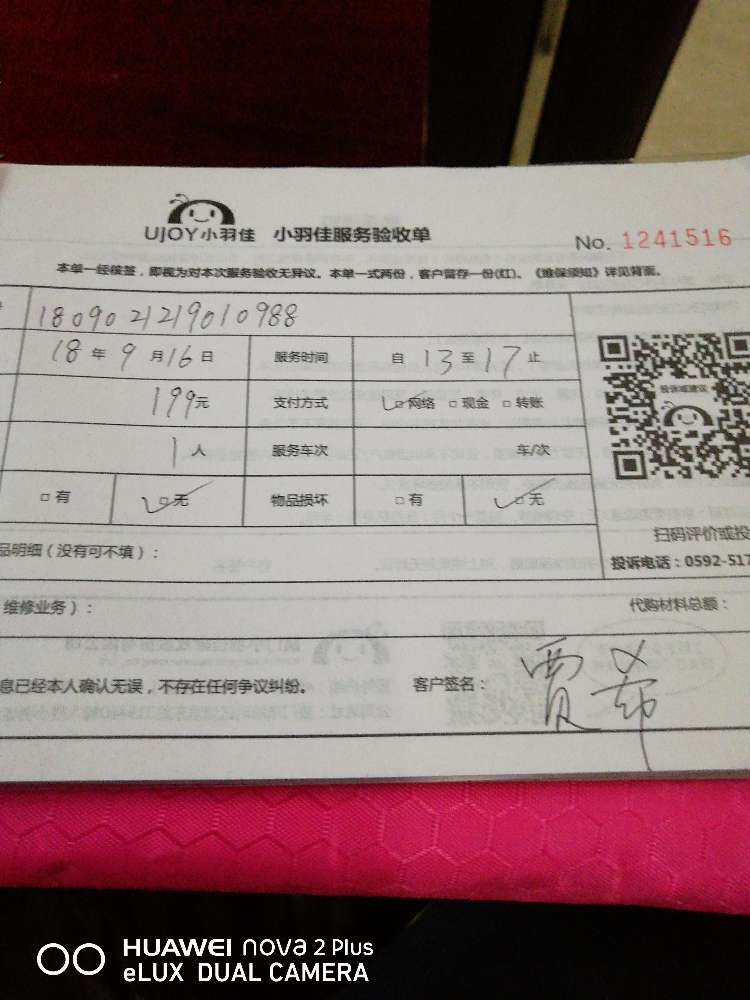 UJOY小羽佳 小羽佳服务验收单 No. 1241516
本单一经核签，即视为对本次服务验收无异议。本单一式两份，客户留存一份(红)。《维保须知》详见背面。
1809021219010988
18年9月16日 服务时间 自13至17止
199元 支付方式 □网络 □现金 □转账
投诉或建议
1人 服务车次 车/次
□有 □无 物品损坏 □有 □无
扫码评价或投
品明细（没有可不填）：
投诉电话：0592-517
维修业务）： 代购材料总额：
息已经本人确认无误，不存在任何争议纠纷。 客户签名： 贾
HUAWEI nova 2 Plus
eLUX DUAL CAMERA